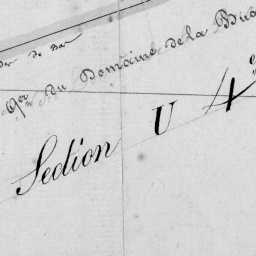 Qer du Domaine de la Bu
Section U 4e